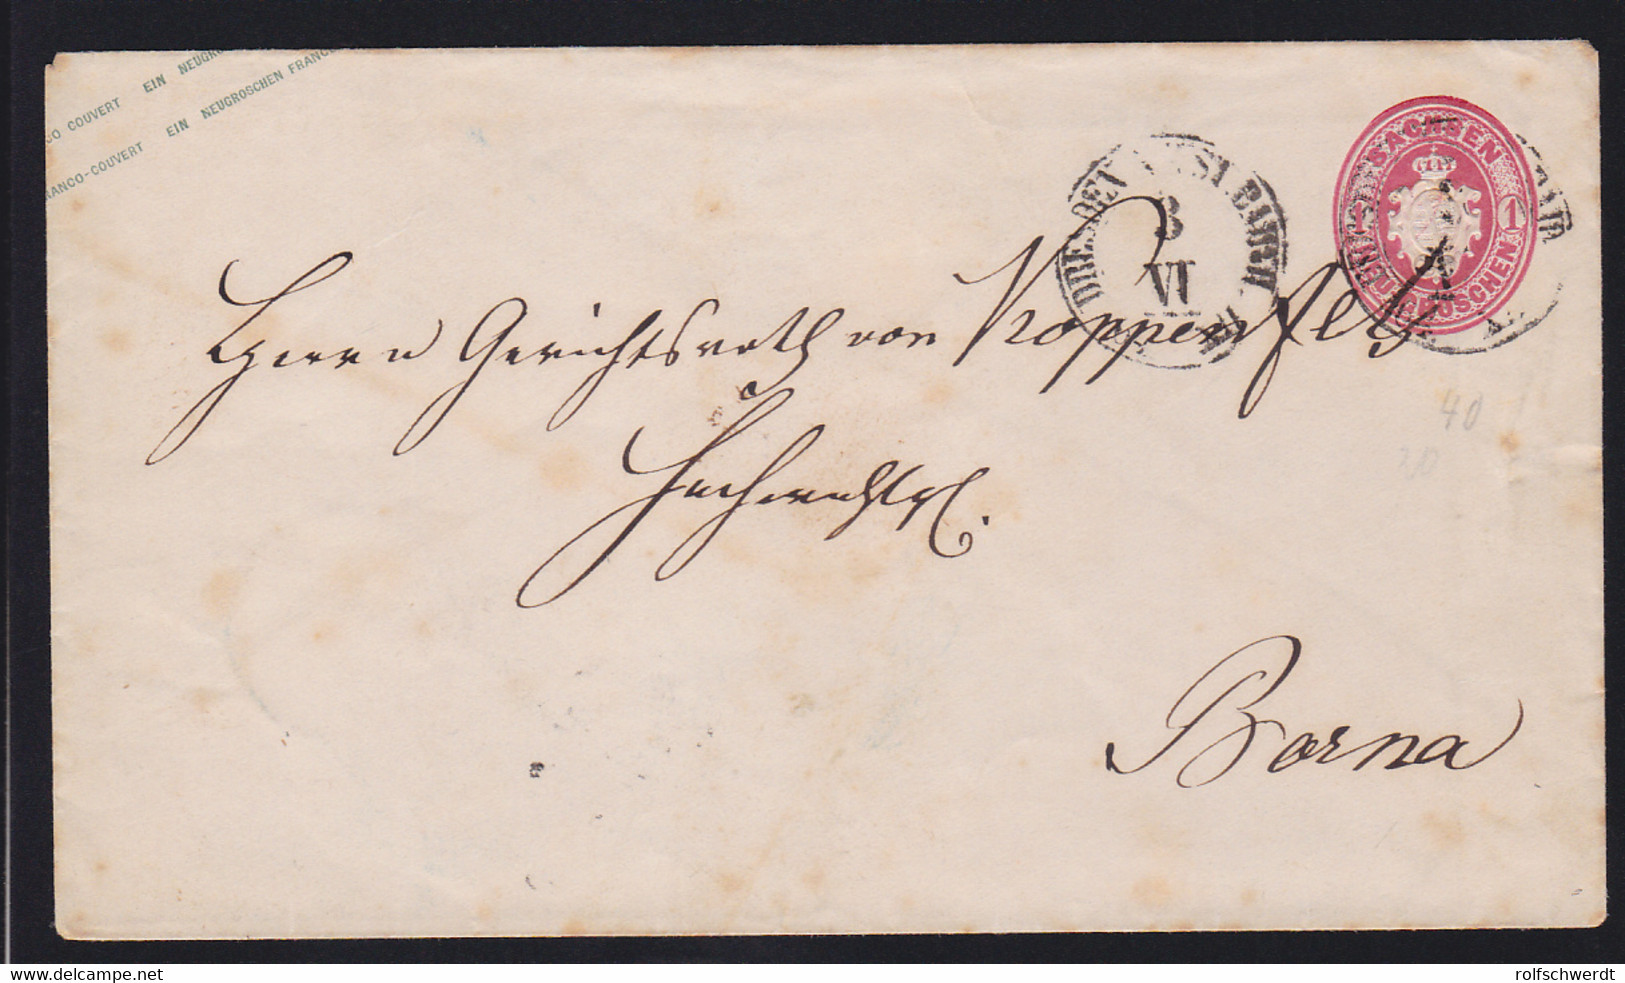 CO COUVERT EIN NEUGRO
RANCO-COUVERT EIN NEUGROSCHEN FRANC
SACHSEN
1 1
NEUGROSCHEN
DRESDEN
3
VI
Herrn Gerichtsrath von Koppenfels
Hochwohlgb.
Borna
40
20
www.delcampe.net
rolfschwerdt